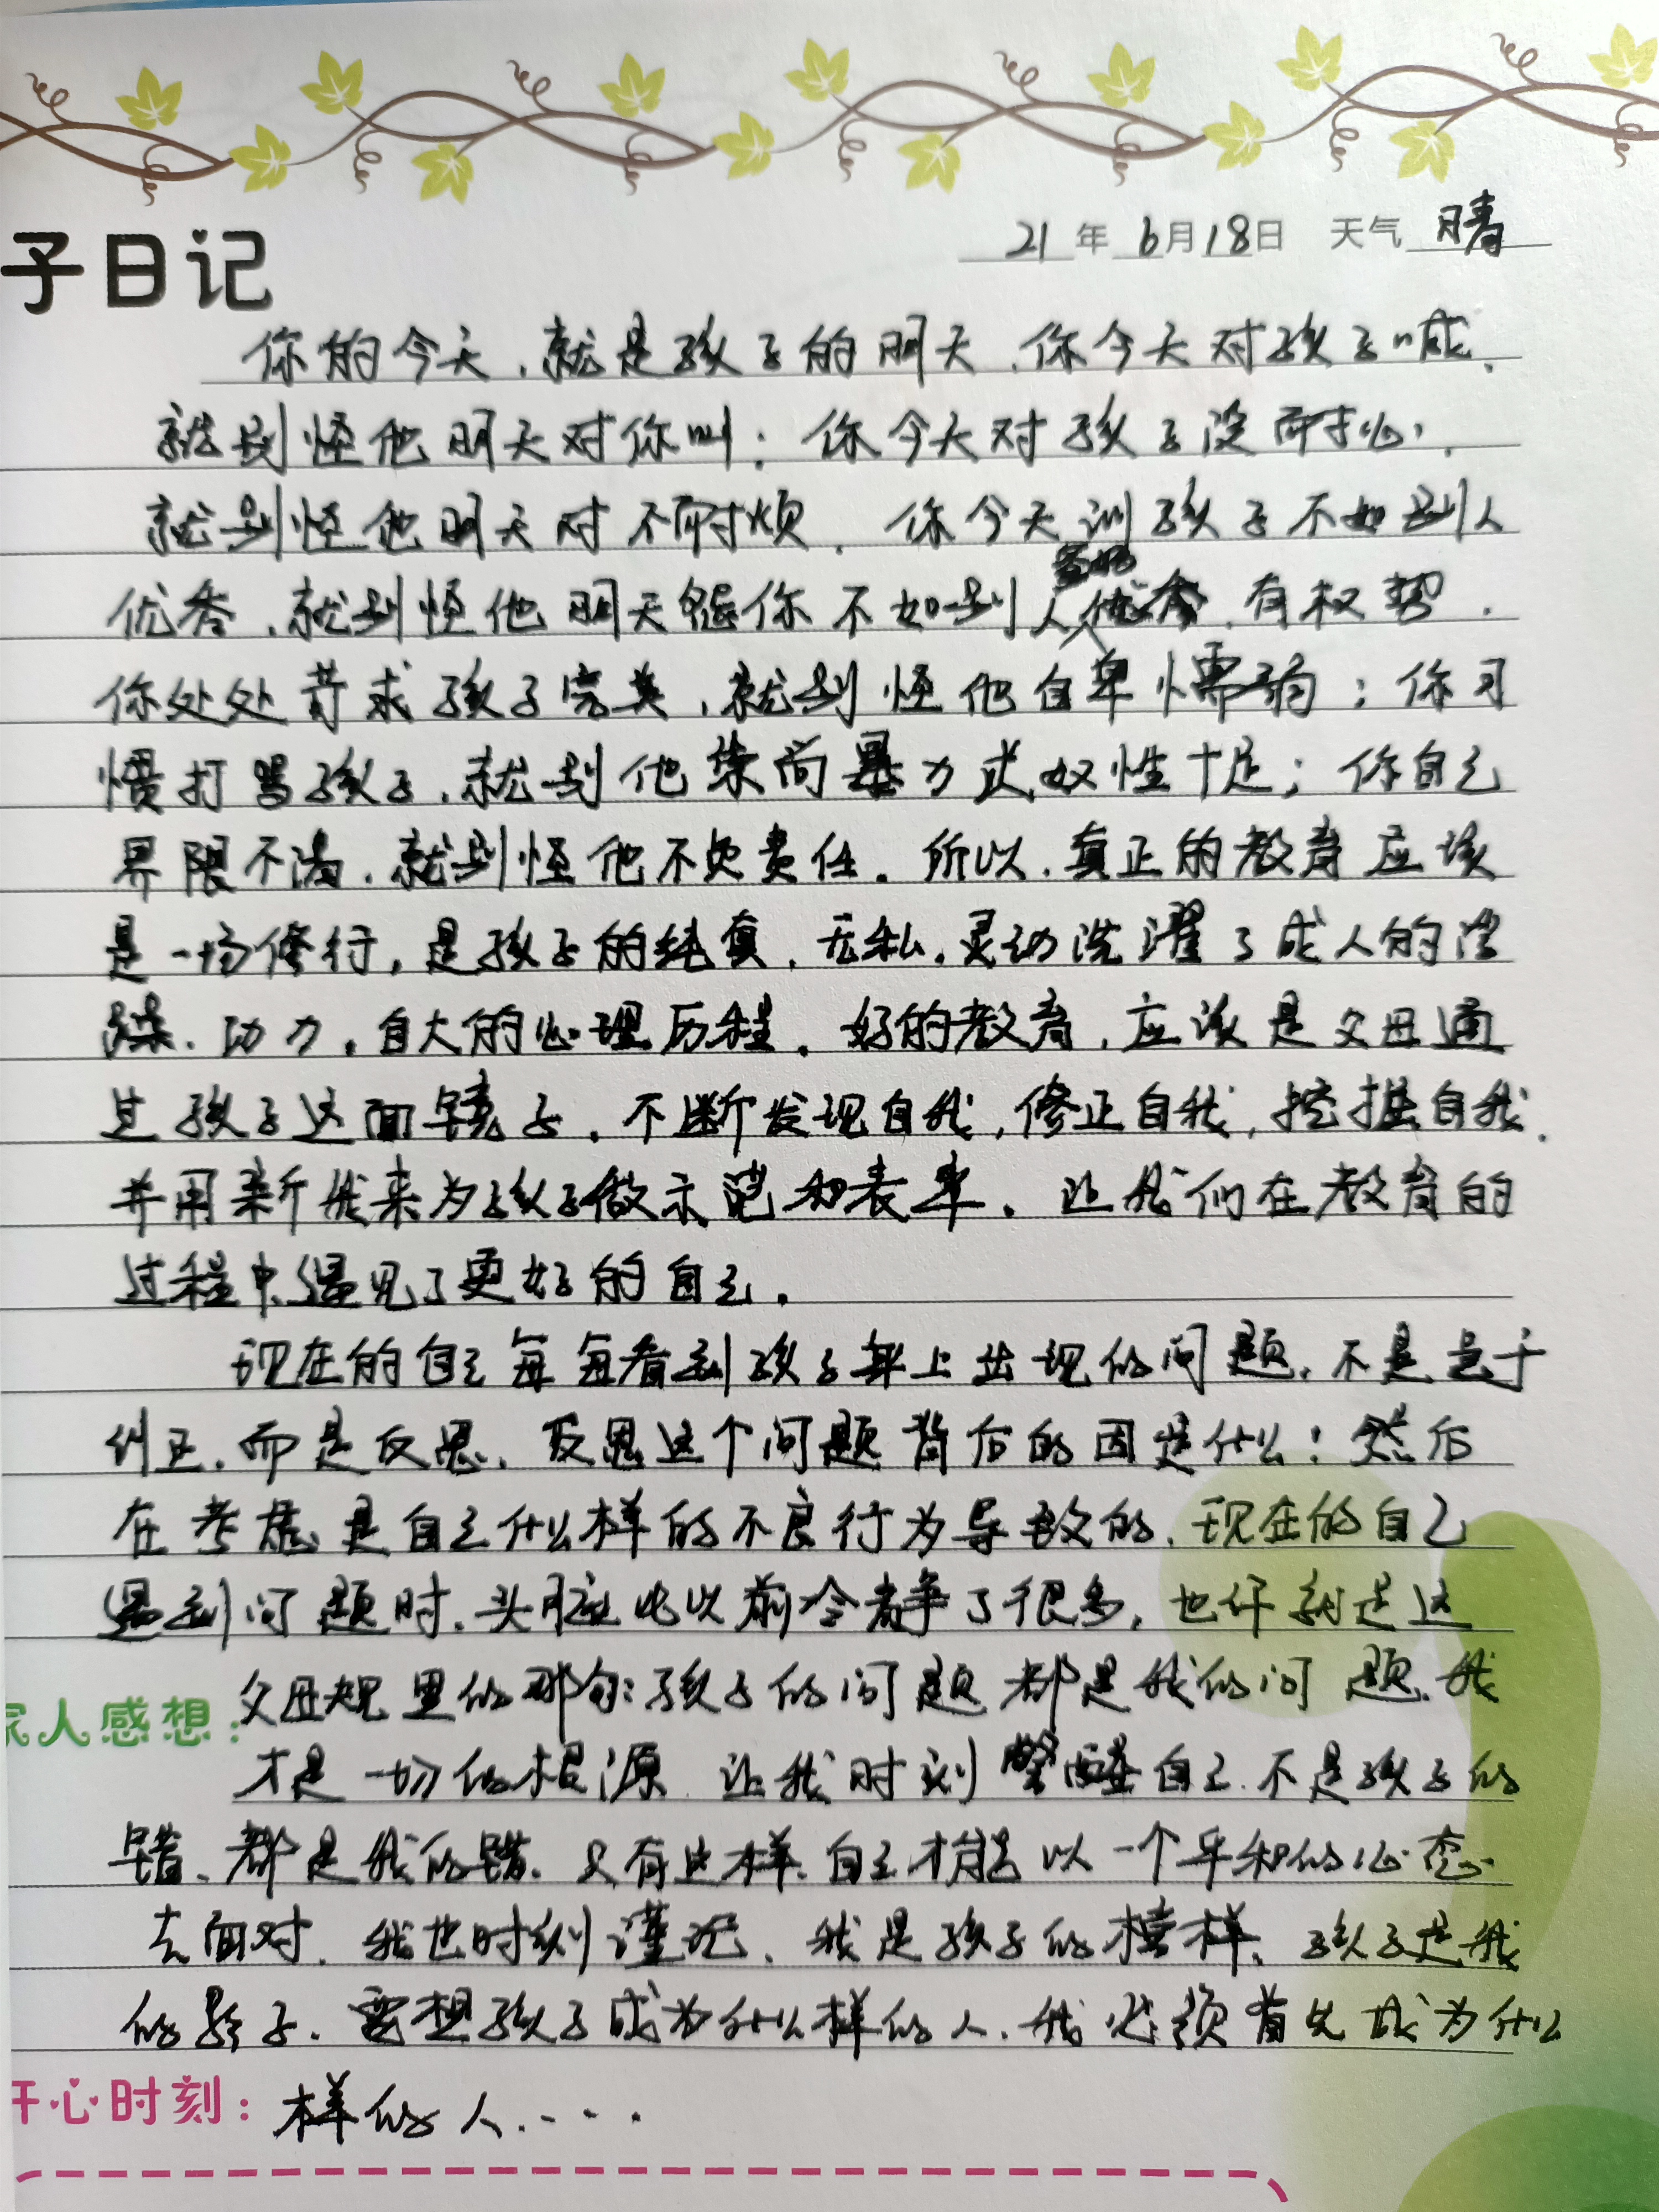 子日记
21年6月18日 天气 晴
你的今天,就是孩子的明天,你今天对孩子喊,
就别怪他明天对你叫;你今天对孩子没耐心,
就别怪他明天对不耐烦,你今天训孩子不如别人
优秀,就别怪他明天怨你不如别人富有,有权势,
你处处苛求孩子完美,就别怪他自卑懦弱;你习
惯打骂孩子,就别他崇尚暴力或奴性十足;你自己
界限不清,就别怪他不负责任。所以,真正的教育应该
是一场修行,是孩子的纯真,无私,灵动洗濯了成人的浮
躁、功力,自大的心理历程。好的教育,应该是父母通
过孩子这面镜子,不断发现自我,修正自我,挖掘自我,
并用新我来为孩子做示范和表率。让我们在教育的
过程中,遇见了更好的自己。
现在的自己每每看到孩子身上出现的问题,不是急于
纠正,而是反思,反思这个问题背后的因是什么;然后
在考虑是自己什么样的不良行为导致的,现在的自己
遇到问题时,头脑比以前冷静了很多,也许就是这
父母规里的那句:孩子的问题都是我的问题,我
家人感想:
才是一切的根源 让我时刻警醒自己,不是孩子的
错,都是我的错,只有这样,自己才能以一个平和的心态
去面对,我也时刻谨记,我是孩子的榜样,孩子是我
的影子,要想孩子成为什么样的人,我必须首先成为什么
开心时刻: 样的人....